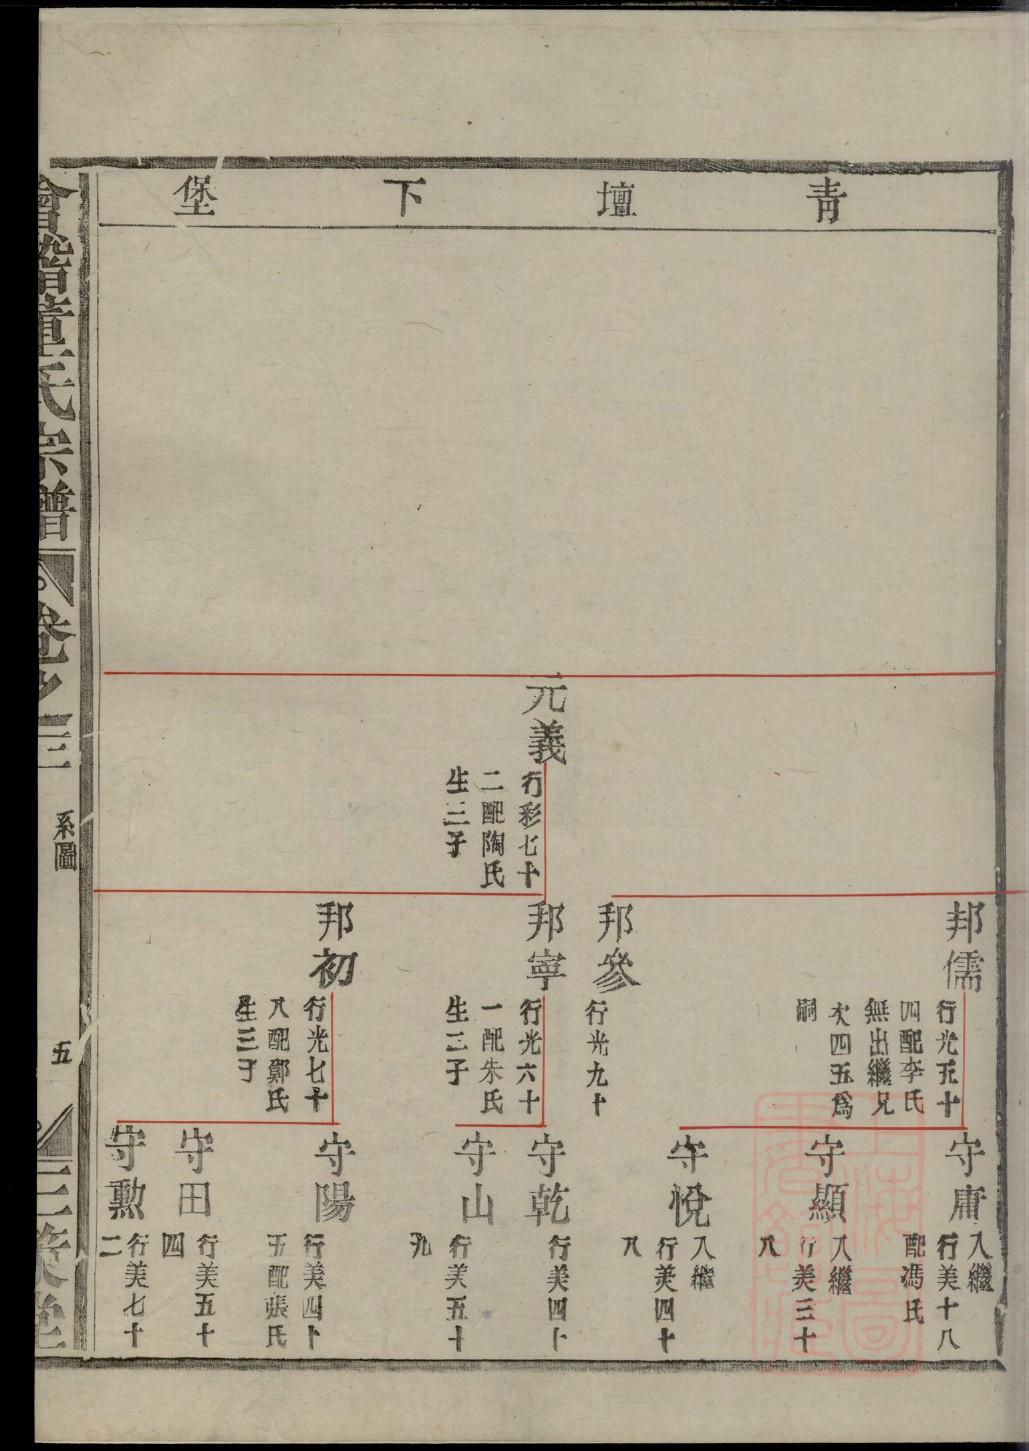 青壇下堡
元義
行彩七十
二配陶氏
生三子
邦儒
行光五十
四配李氏
無出繼兄
次四五爲
嗣
邦參
行光九十
邦寧
行光六十
一配朱氏
生二子
邦初
行光七十
八配鄭氏
生三子
守庸
入繼
行美十八
配馮氏
守顯
入繼
行美三十
八
守悅
入繼
行美四十
八
守乾
行美四十
守山
行美五十
九
守陽
行美四十
五配張氏
守田
行美五十
四
守勳
行美七十
二
會稽童氏宗譜
卷之三
系圖
五